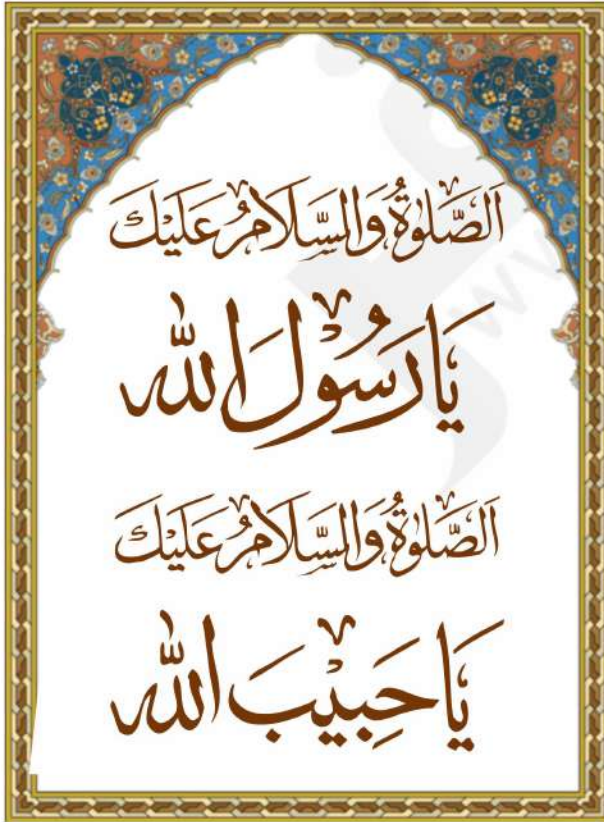 اَلصَّلٰوةُ وَالسَّلَامُ عَلَيْكَ
يَا رَسُوْلَ اللّٰه
اَلصَّلٰوةُ وَالسَّلَامُ عَلَيْكَ
يَا حَبِيْبَ اللّٰه